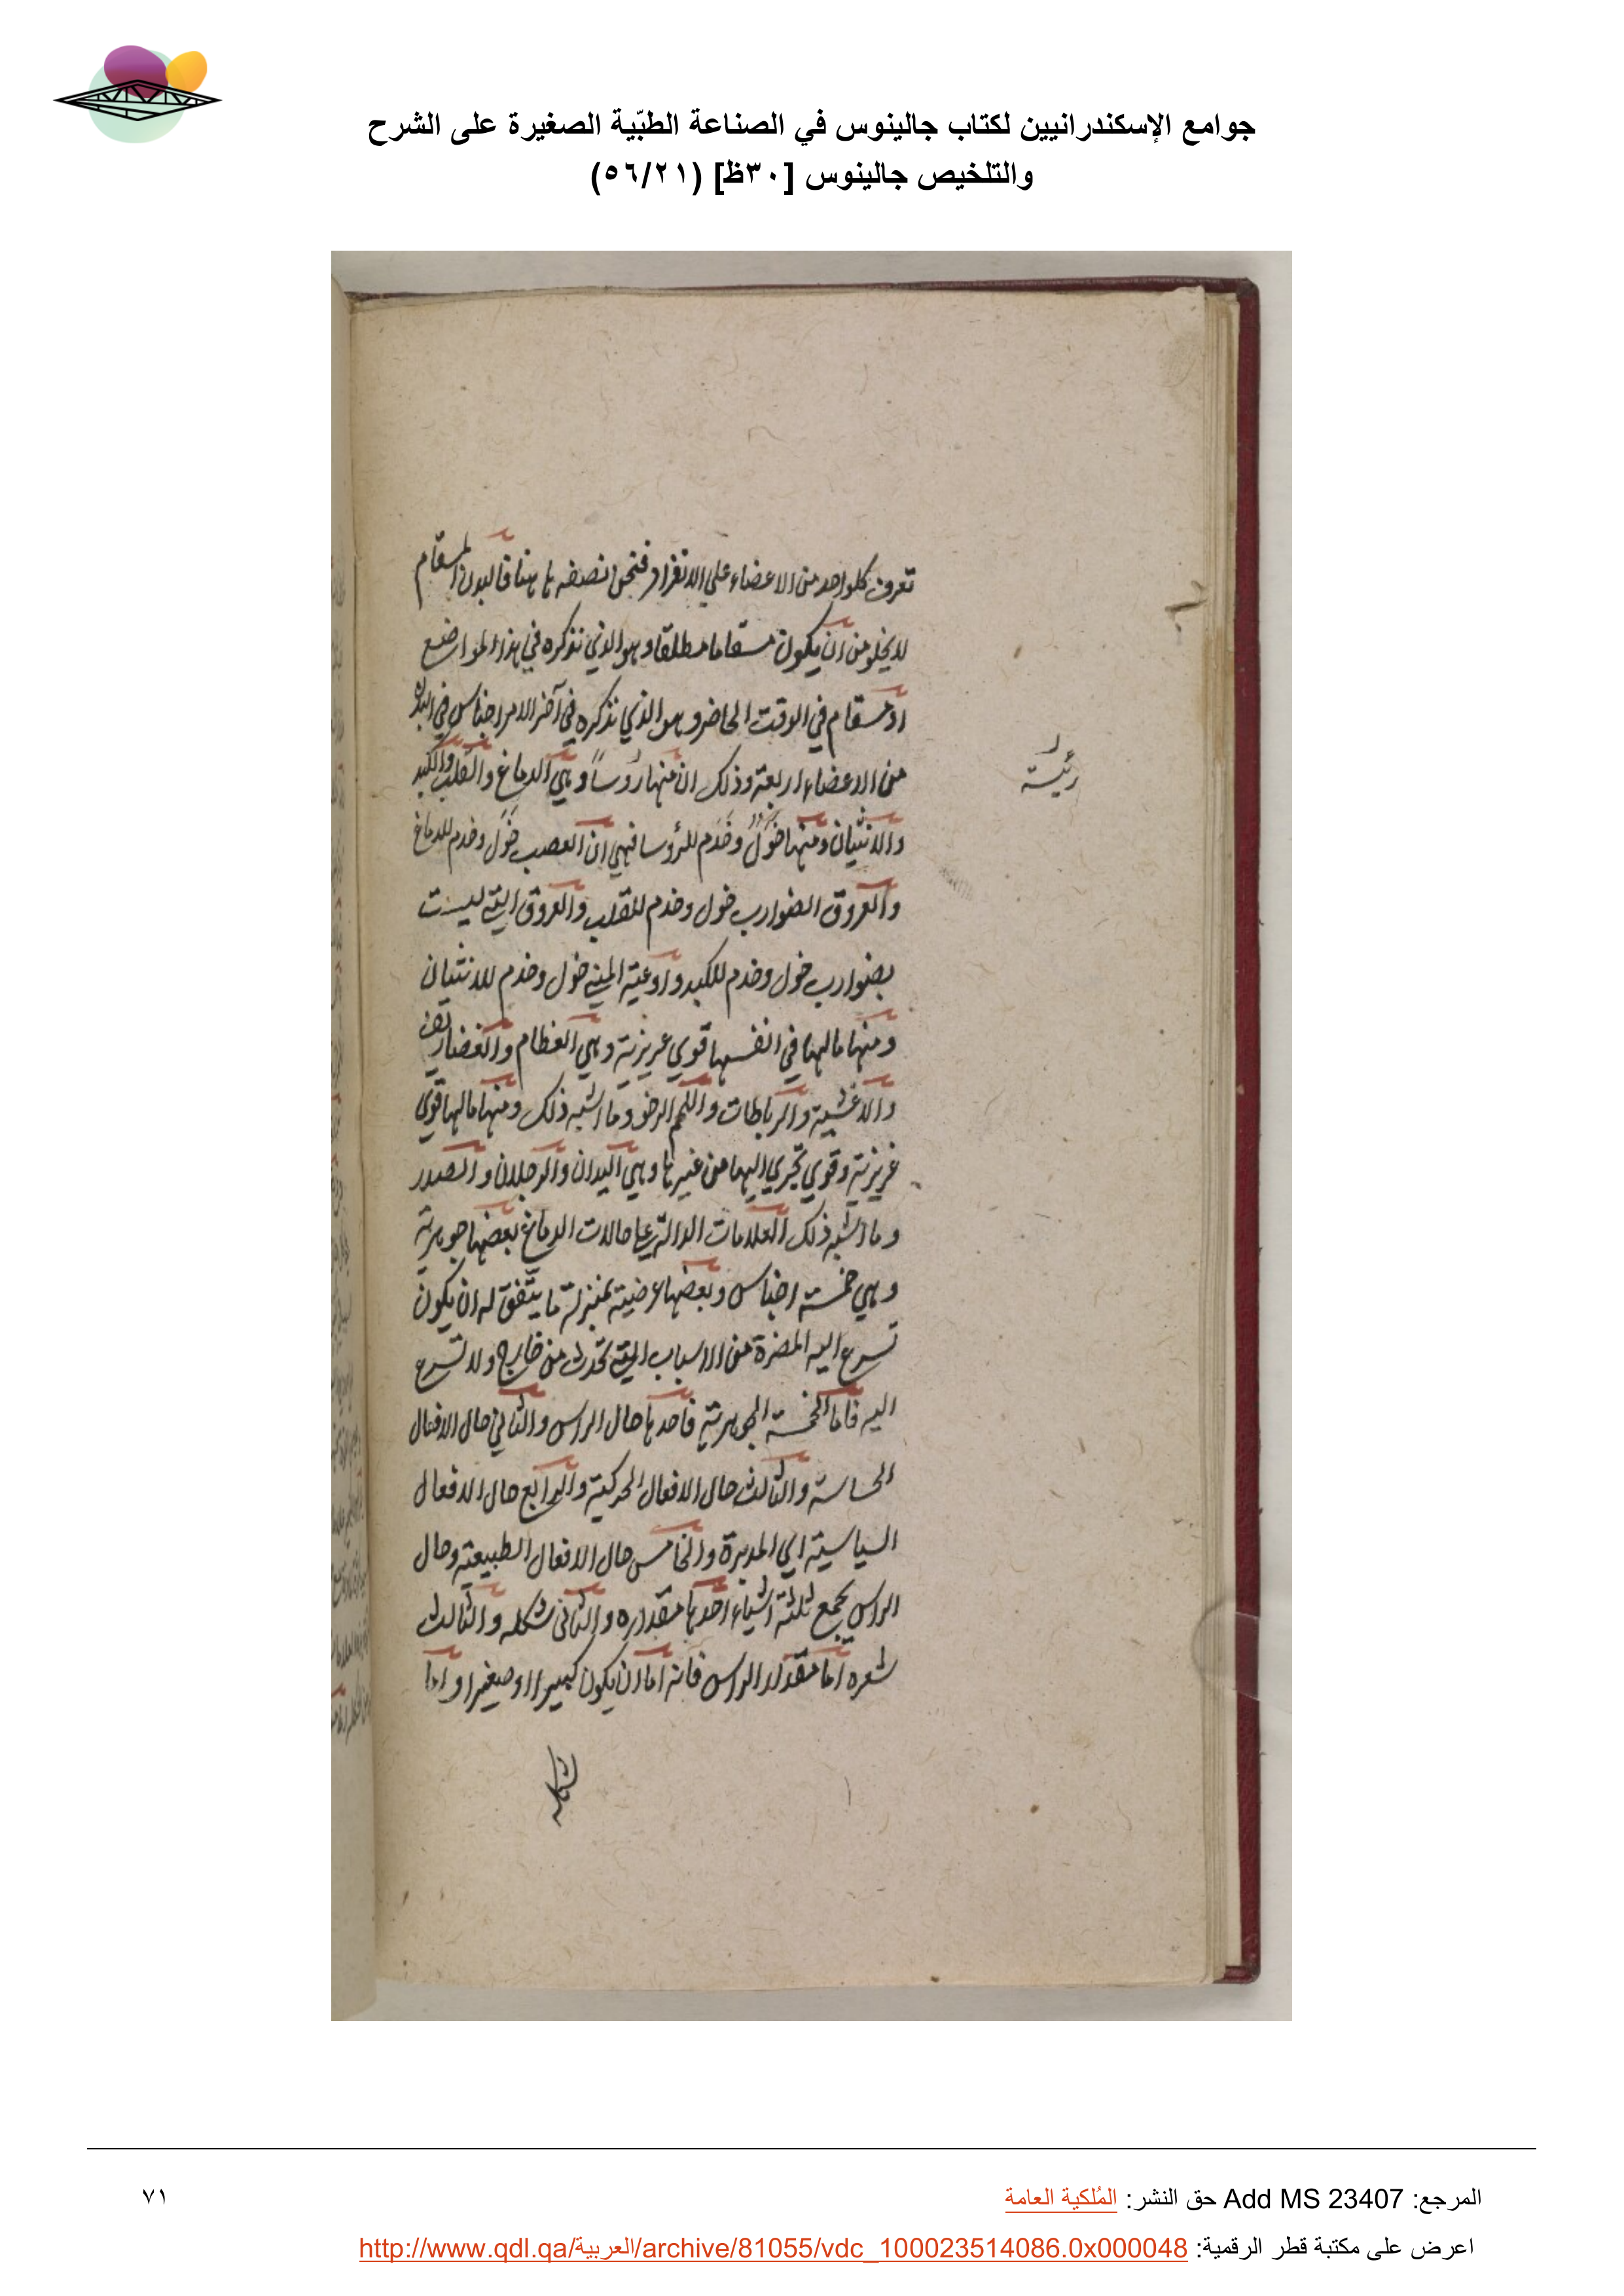 جوامع الإسكندرانيين لكتاب جالينوس في الصناعة الطبّية الصغيرة على الشرح
والتلخيص جالينوس [٣٠ظ] (٥٦/٢١)
تعرف كلواحد من الاعضاء علي الانفراد فنحن نصفه هاهنا فالبدن المسقام
لا يخلو من ان يكون مسقاما مطلقا وهو الذي نذكره في هذا المواضع
او مسقام في الوقت الحاضر وهو الذي نذكره في آخر الامر اجناس في البدن
من الاعضاء اربعة وذلك ان منها رؤوسا وهي الدماغ والقلب والكبد
والانثيان ومنها خول وخدم للرؤسا فهي ان العصب خول وخدم للدماغ
والعروق الضوارب خول وخدم للقلب والعروق التي ليست
بضوارب خول وخدم للكبد واوعية المني خول وخدم للانثيان
ومنها مالها في انفسها قوي عريزية وهي العظام والغضاريف
والاغشية والرباطات واللحم الرخو وما اشبه ذلك ومنها مالها قوي
غريزية وقوي تجري اليها من غيرها وهي اليدان والرجلان والصدر
وما اشبه ذلك العلامات الدالة علي حالات الدماغ بعضها جوهرية
وهي خمسة اجناس وبعضها عرضية بمنزلة ما يتفق له ان يكون
تسرع اليه المضرة من الاسباب التي تحدث من خارج ولا تسرع
اليه فاما الخمسة الجوهرية فاحدها حال الراس والثاني حال الافعال
الحاسة والثالث حال الافعال الحركية والرابع حال الافعال
السياسية اي المدبرة والخامس حال الافعال الطبيعية وحال
الراس يجمع ثلثة اشياء احدها مقداره والثاني شكله والثالث
شعره اما مقدار الراس فانه اما ان يكون كبيرا او صغيرا واما
شكله
رئيسة
المرجع: Add MS 23407 حق النشر: المُلكية العامة
٧١
اعرض على مكتبة قطر الرقمية: http://www.qdl.qa/العربية/archive/81055/vdc_100023514086.0x000048